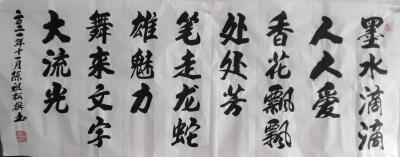 墨水滴滴
人人爱
香花飘飘
处处芳
笔走龙蛇
雄魅力
舞来文字
大流光
二〇二一年十一月陈祖松撰书